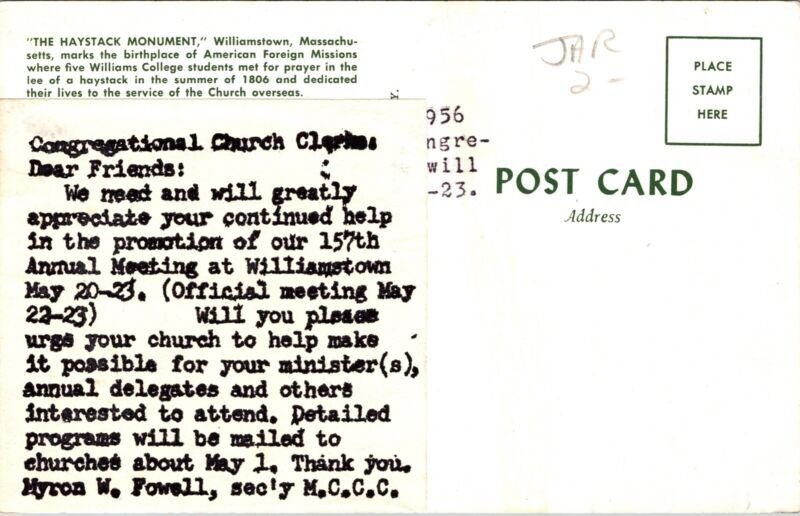 "THE HAYSTACK MONUMENT," Williamstown, Massachu-
setts, marks the birthplace of American Foreign Missions
where five Williams College students met for prayer in the
lee of a haystack in the summer of 1806 and dedicated
their lives to the service of the Church overseas.
Congregational Church Clerks:
Dear Friends:
We need and will greatly
appreciate your continued help
in the promotion of our 157th
Annual Meeting at Williamstown
May 20-23. (Official meeting May
22-23) Will you please
urge your church to help make
it possible for your minister(s),
annual delegates and others
interested to attend. Detailed
programs will be mailed to
churches about May 1. Thank you.
Myron W. Fowell, sec'y M.C.C.C.
956
ngre-
will
-23.
JAR
2-
PLACE
STAMP
HERE
POST CARD
Address